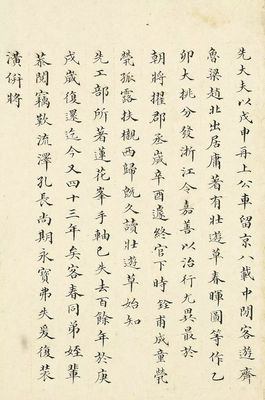 先大夫以戊申再上公車留京八載中間客遊齊
魯梁趙北出居庸著有壯遊草春暉圖等作乙
卯大挑分發浙江令嘉善以治行尤異最於
朝將擢郡丞歲辛酉遽終官下時銓甫成童煢
煢孤露扶櫬西歸旣久讀壯遊草始知
先工部所著蓮花峯手軸已失去百餘年於庚
戌歲復還迄今又四十三年矣客春同弟姪輩
恭閱竊歎流澤孔長尚期永寶弗失爰復裝
潢併將